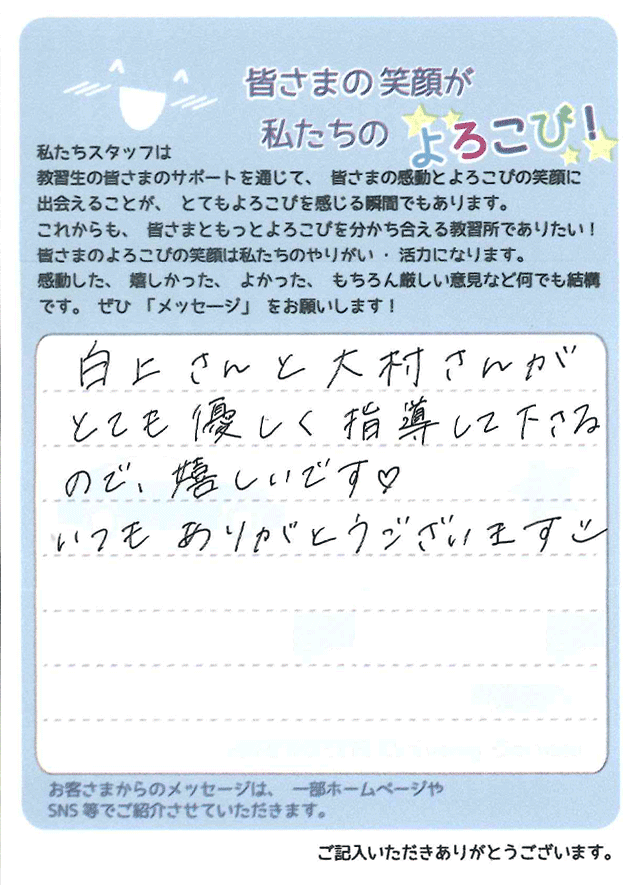 皆さまの笑顔が
私たちの よろこび!
私たちスタッフは
教習生の皆さまのサポートを通じて、 皆さまの感動とよろこびの笑顔に
出会えることが、 とてもよろこびを感じる瞬間でもあります。
これからも、 皆さまともっとよろこびを分かち合える教習所でありたい!
皆さまのよろこびの笑顔は私たちのやりがい・活力になります。
感動した、 嬉しかった、 よかった、 もちろん厳しい意見など何でも結構
です。 ぜひ 「メッセージ」 をお願いします!
白上さんと大村さんが
とても優しく指導して下さる
ので、嬉しいです♡
いつもありがとうございます
お客さまからのメッセージは、 一部ホームページや
SNS等でご紹介させていただきます。
ご記入いただきありがとうございます。